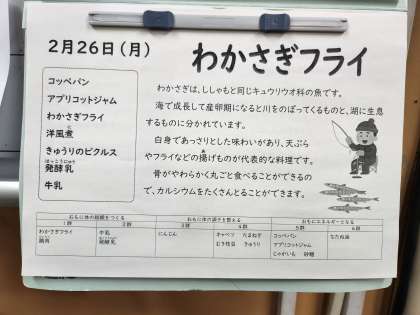 2月26日(月)
わかさぎフライ
コッペパン
アプリコットジャム
わかさぎフライ
洋風煮
きゅうりのピクルス
はっこうにゅう
発酵乳
牛乳
わかさぎは、ししゃもと同じキュウリウオ科の魚です。
海で成長して産卵期になると川をのぼってくるものと、湖に生息
するものに分かれています。
白身であっさりとした味わいがあり、天ぷら
やフライなどの揚げものが代表的な料理です。
骨がやわらかく丸ごと食べることができるの
で、カルシウムをたくさんとることができます。
おもに体の組織をつくる
おもに体の調子を整える
おもにエネルギーとなる
1群
2群
3群
4群
5群
6群
わかさぎフライ
牛乳
にんじん
キャベツ たまねぎ
コッペパン
なたね油
鶏肉
発酵乳
むき枝豆 きゅうり
アプリコットジャム
じゃがいも 砂糖